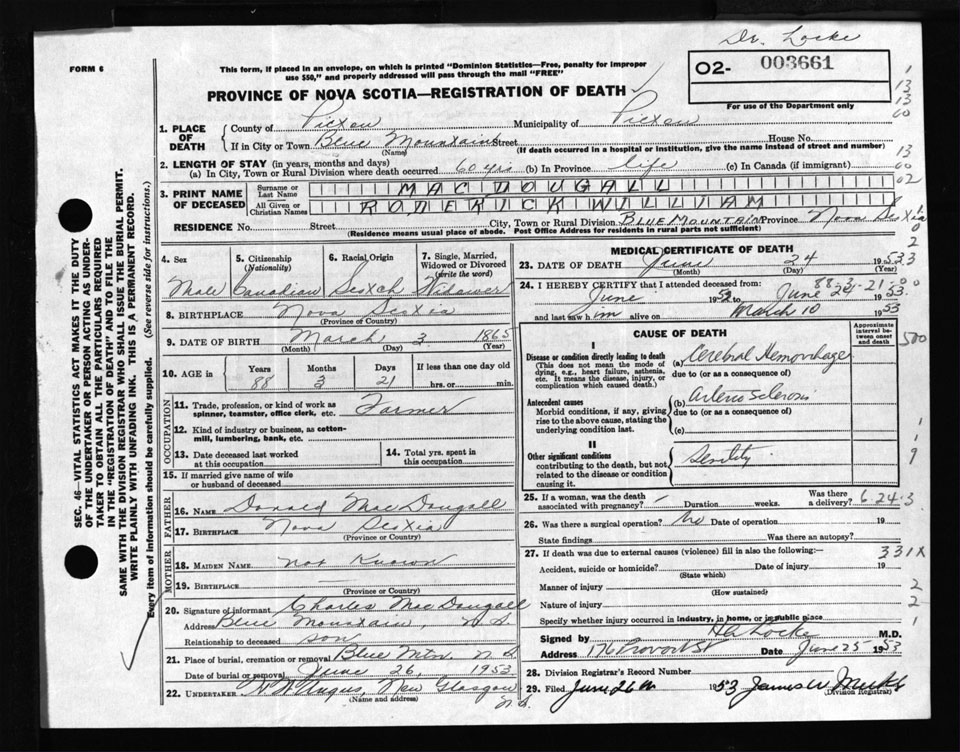 Dr. Locke
FORM 6
This form, if placed in an envelope, on which is printed "Dominion Statistics—Free, penalty for improper
use $50," and properly addressed will pass through the mail "FREE"
02- 003661
For use of the Department only
PROVINCE OF NOVA SCOTIA—REGISTRATION OF DEATH
1
13
13
60
13
60
02
1. PLACE OF DEATH
County of Pictou Municipality of Pictou
If in City or Town Blue Mountain Street House No.
(Name) (If death occurred in a hospital or institution, give the name instead of street and number)
2. LENGTH OF STAY (in years, months and days)
(a) In City, Town or Rural Division where death occurred 60 yrs (b) In Province life (c) In Canada (if immigrant)
3. PRINT NAME OF DECEASED
Surname or Last Name MAC DOUGALL
All Given or Christian Names RODERICK WILLIAM
RESIDENCE No. Street City, Town or Rural Division BLUE MOUNTAIN Province Nova Scotia
(Residence means usual place of abode. Post Office Address for residents in rural parts not sufficient)
4. Sex Male
5. Citizenship (Nationality) Canadian
6. Racial Origin Scotch
7. Single, Married, Widowed or Divorced (write the word) Widower
8. BIRTHPLACE Nova Scotia
(Province or Country)
9. DATE OF BIRTH March 3 1865
(Month) (Day) (Year)
10. AGE in Years 88 Months 3 Days 21 If less than one day old hrs. or min.
OCCUPATION
11. Trade, profession or kind of work as spinner, teamster, office clerk, etc. Farmer
12. Kind of industry or business, as cotton-mill, lumbering, bank, etc.
13. Date deceased last worked at this occupation
14. Total yrs. spent in this occupation
15. If married give name of wife or husband of deceased
FATHER
16. Name Donald MacDougall
17. Birthplace Nova Scotia
(Province or Country)
MOTHER
18. Maiden Name not Known
19. Birthplace
(Province or Country)
20. Signature of informant Charles MacDougall
Address Blue Mountain, N.S.
Relationship to deceased son
21. Place of burial, cremation or removal Blue Mtn. N.S.
Date of burial or removal June 26, 1953
22. Undertaker New Glasgow N.S.
(Name and address)
MEDICAL CERTIFICATE OF DEATH
23. DATE OF DEATH June 24 1953
(Month) (Day) (Year)
24. I HEREBY CERTIFY that I attended deceased from:
June 1952 to June 24 1953.
and last saw him alive on March 10 1953
CAUSE OF DEATH
Approximate interval between onset and death
I
Disease or condition directly leading to death (This does not mean the mode of dying, e.g., heart failure, asthenia, etc. It means the disease, injury, or complication which caused death.)
(a) Cerebral Hemorrhage
due to (or as a consequence of)
Antecedent causes
Morbid conditions, if any, giving rise to the above cause, stating the underlying condition last.
(b) Arterio Sclerosis
due to (or as a consequence of)
(c)
II
Other significant conditions contributing to the death, but not related to the disease or condition causing it.
Senility
25. If a woman, was the death associated with pregnancy? Duration weeks. Was there a delivery? 6-24-3
26. Was there a surgical operation? No Date of operation 19
State findings Was there an autopsy?
27. If death was due to external causes (violence) fill in also the following:— 331X
Accident, suicide or homicide? Date of injury 19
(State which)
Manner of injury 2
(How sustained)
Nature of injury 2
Specify whether injury occurred in industry, in home, or in public place 1
Signed by HA Locke M.D.
Address 176 Provost St Date June 25 1953
28. Division Registrar's Record Number
29. Filed June 26th 1953
(Division Registrar)
SEC. 46—VITAL STATISTICS ACT MAKES IT THE DUTY
OF THE UNDERTAKER OR PERSON ACTING AS UNDER-
TAKER TO OBTAIN ALL THE PARTICULARS REQUIRED
IN THE "REGISTRATION OF DEATH" AND TO FILE THE
SAME WITH THE DIVISION REGISTRAR WHO SHALL ISSUE THE BURIAL PERMIT.
WRITE PLAINLY WITH UNFADING INK. THIS IS A PERMANENT RECORD.
Every item of information should be carefully supplied. (See reverse side for instructions.)